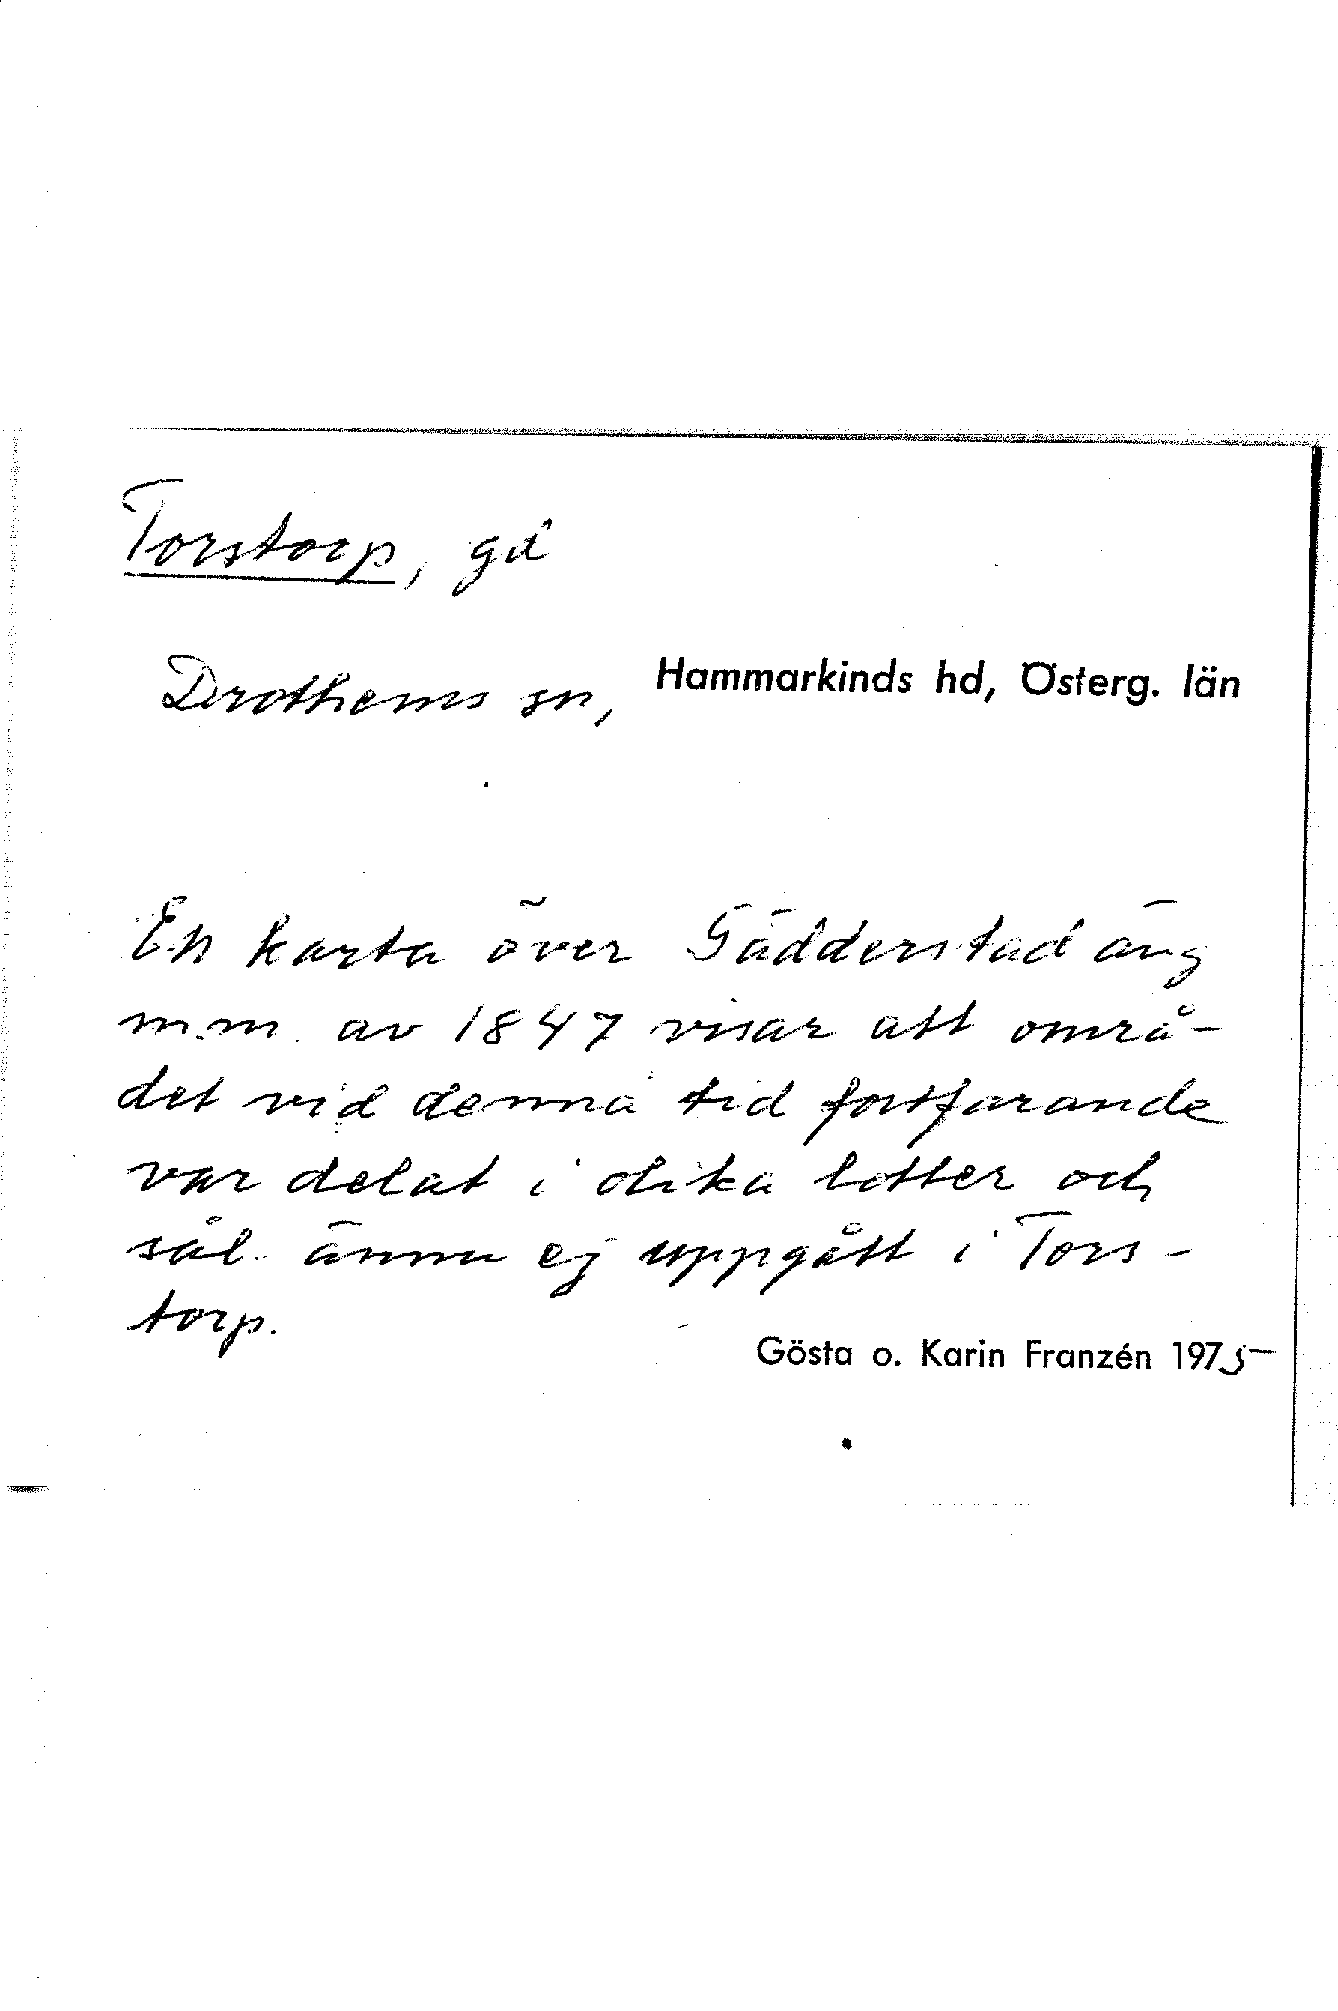 Torstorp, gd
Drothems sn, Hammarkinds hd, Österg. län
En karta över Gädderstad äng
m.m. av 1847 visar att områ-
det vid denna tid fortfarande
var delat i olika lotter och
sål. ännu ej uppgått i Tors-
torp.
Gösta o. Karin Franzén 1975